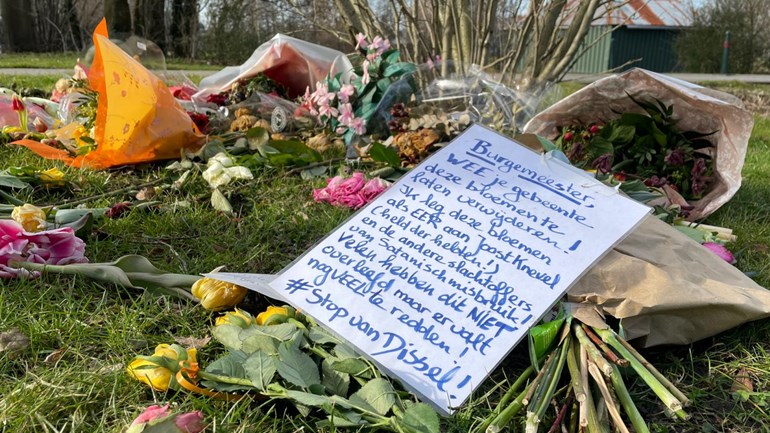 Burgemeester,
WEE je gebeente
deze bloemen te
laten verwijderen!
Ik leg deze bloemen
als EER aan Joost Knevel
(held der helden!),
en de andere slachtoffers
van Satanisch misbruik!
Velen hebben dit NIET
overleefd maar er valt
nog VEEL te redden!
# Stop van Dissel!